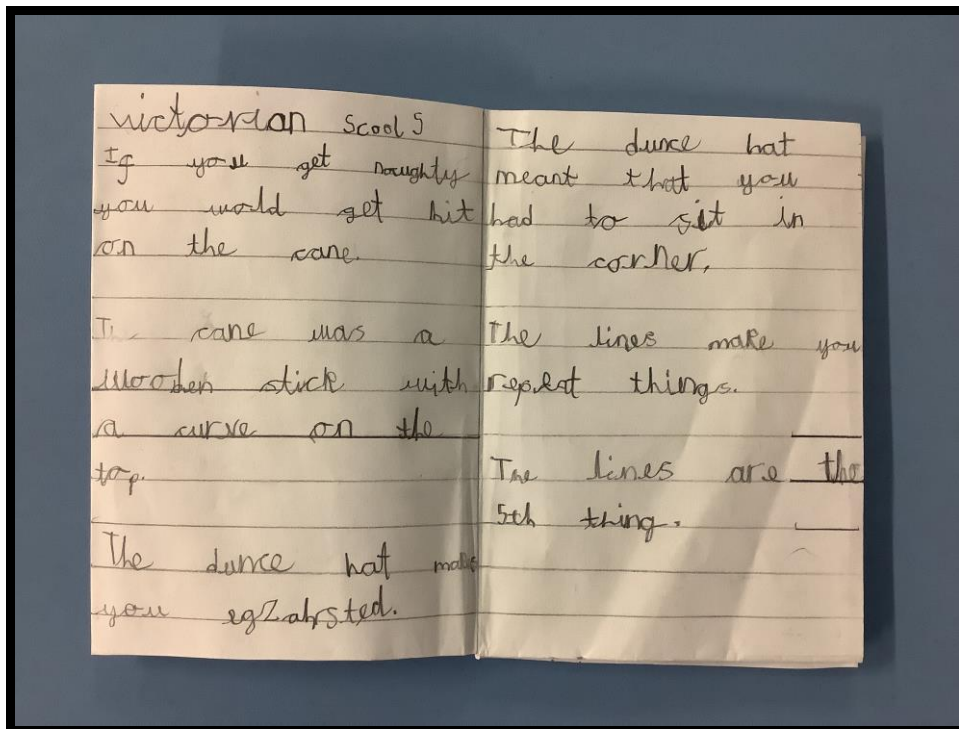 victorian scools
If you get noughty
you would get hit
on the cane.
The cane was a
wooden stick with
a curve on the
top.
The dunce hat make
you egzahsted.
The dunce hat
meant that you
had to sit in
the corner.
The lines make you
repeat things.
The lines are the
5th thing.